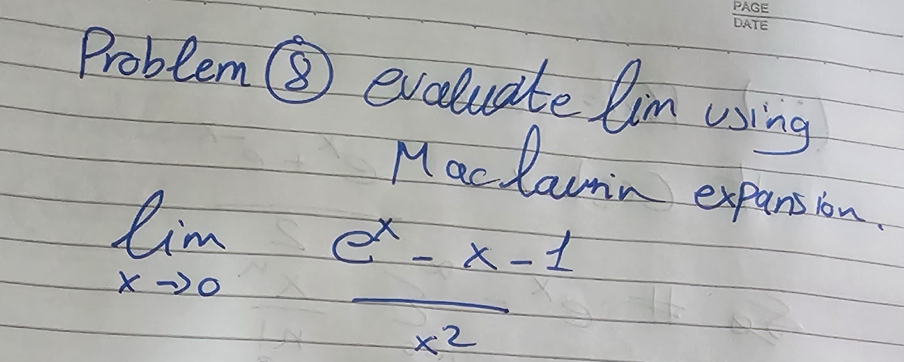 PAGE
DATE
Problem 8 evaluate lim using
Maclaurin expansion.
lim e^x - x - 1
x → 0 x^2